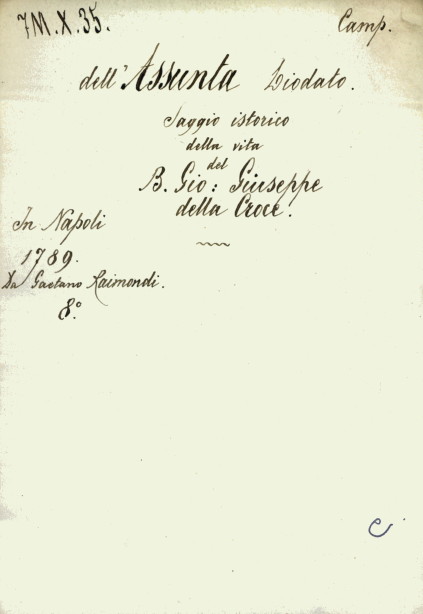 7M.X.35.
Camp.
dell'Assunta Diodato.
Saggio istorico
della vita
del
B. Gio: Giuseppe
della Croce.
In Napoli
1789.
Da Gaetano Raimondi.
8.°
C